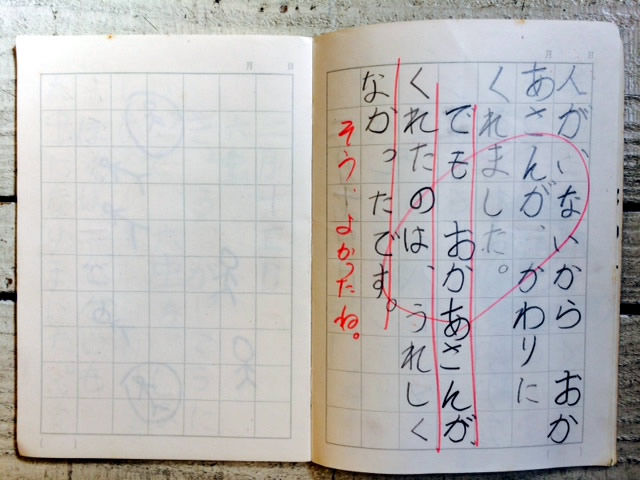 月 日
人が、いないから おか
あさんが、かわりに
くれました。
でも おかあさんが、
くれたのは、うれしく
なかったです。
そう、よかったね。
月 日